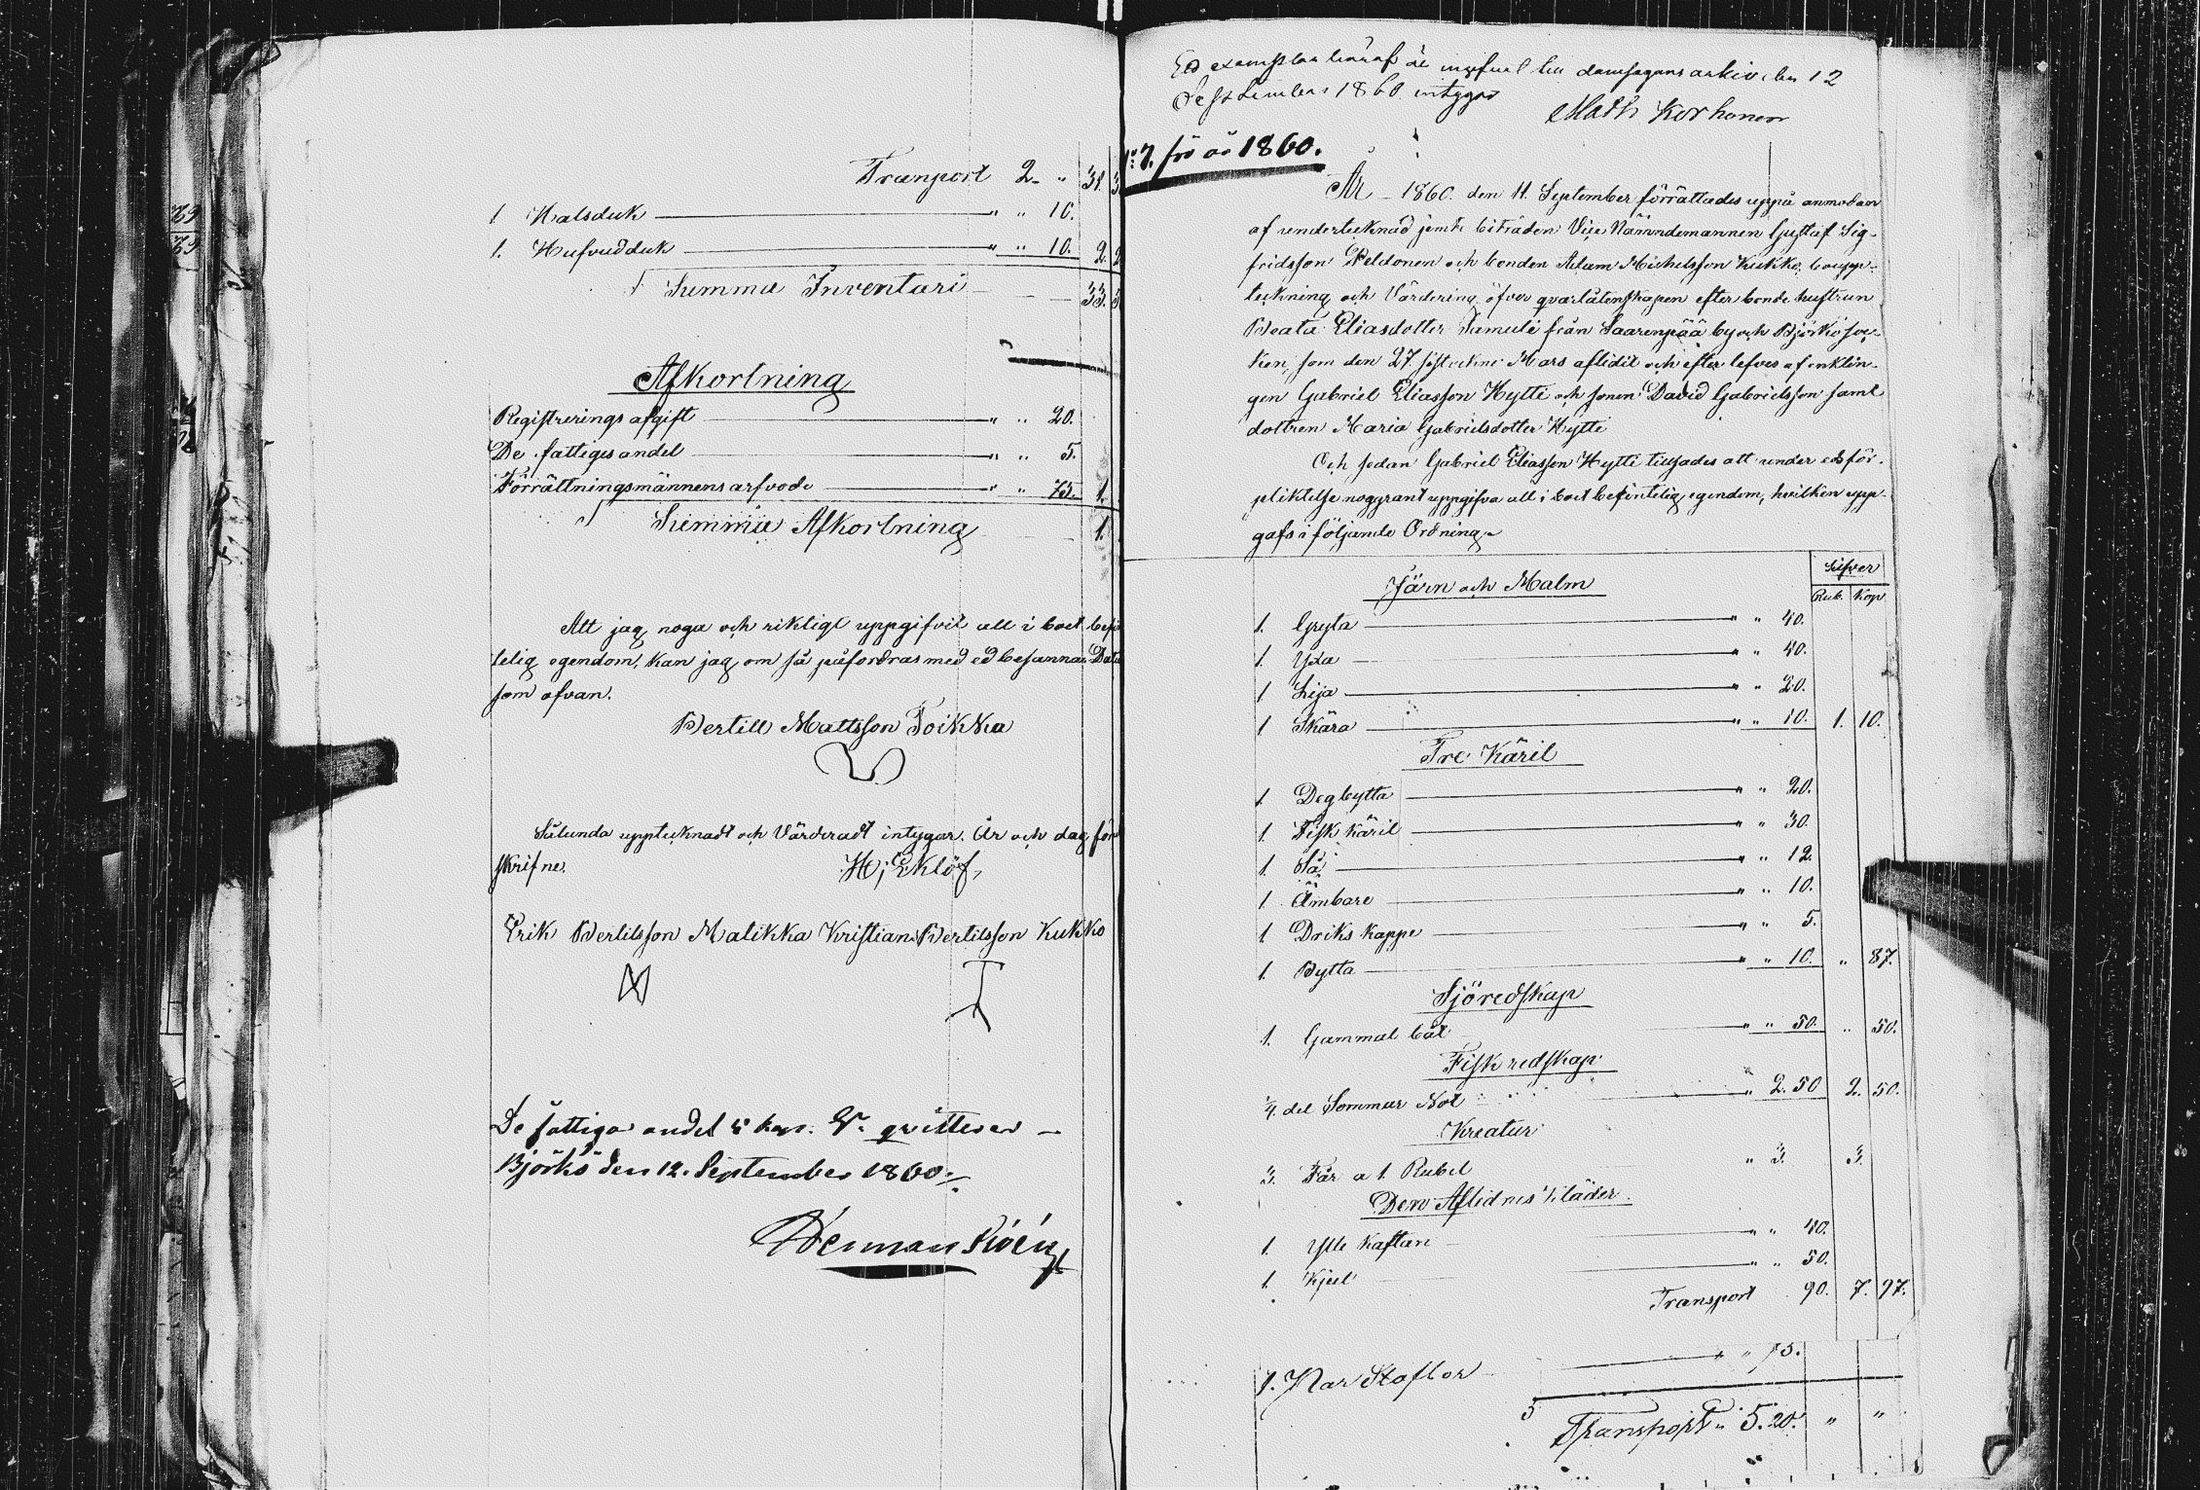 Transport 2. " 31. 3
1 Halsduk " " 10.
1. Hufvudduk " " 10. 2. 2
Summa Inventari 33. 3
Afkortning
Registrerings afgift " " 20.
De fattiges andel " " 5.
Förrättningsmännens arfvode " " 75. 1.
Summa Afkortning 1.
Att jag noga och riktigt uppgifvit all i boet befi
telig egendom, kan jag om så påfordras med ed besanna Datu
som ofvan.
Bertill Mattsson Toikka
Sålunda upptecknadt och Värderadt intygar. År och dag för
skrifne.
H; Eklöf,
Erik Bertilsson Matikka Kristian Bertilsson Kukko
De fattiga andel 5 kop. Sr. qvitteras
Björkö den 12. September 1860.
Herman
Ett exemplar häraf är till domsagans arkiv den 12
September 1860 intygas
Math Korhonen
No 7. för år 1860.
År 1860. den 11 September förrättades uppå anmodan
af undertecknad jemte biträden Vice Nämndemannen Gustaf Sig-
fridsson Peldonen och bonden Adam Michelsson Kukko, boupp-
teckning och Värdering öfver qvarlåtenskapen efter bonde hustrun
Beata Eliasdotter Samuli från Saarenpää by och Björkö soc-
ken, som den 27 sistledne Mars aflidit och efter lefves af enklin-
gen Gabriel Eliasson Hytti och sonen David Gabrielsson samt
dottren Maria Gabrielsdotter Hytti
Och sedan Gabriel Eliasson Hytti tillsades att under edsför-
pliktelse noggrant uppgifva all i boet befintelig egendom, hvilken upp-
gafs i följande Ordning.
Silfver
Järn och Malm
Rub. Kop
1. Gryta " " 40.
1. Yxa " " 40.
1 Lija " " 20.
1 Skära " " 10. 1. 10.
Tre Käril
1. Degbytta " " 20.
1. Fisk käril " " 30.
1. Så " " 12.
1. Ämbare " " 10.
1 Driks kappe " " 5.
1. Bytta " " 10. " 87.
Sjöredskap
1. Gammal båt " " 50. " 50.
Fisk redskap
1/4. del Sommar Not " 2. 50 2. 50.
Kreatur
3. Får a 1. Rubel " 3. 3.
Den Aflidnes Kläder
1. Ylle Kaftan " " 40.
1. Kjol " " 50.
Transport 90. 7. 97.
1. Par " " 75.
Transport " 5. 20. " "